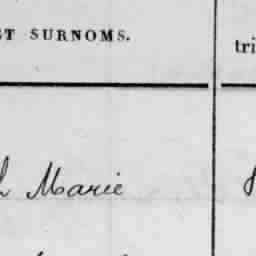 ET SURNOMS.
tri
h Marie